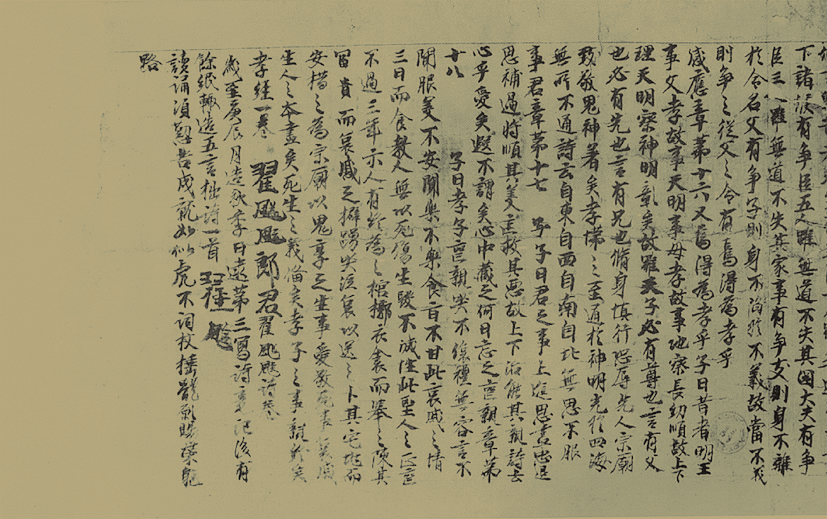 下諸侯有争臣五人雖無道不失其國大夫有争
臣三人雖無道不失其家事有争友則身不離
於令名父有争子則身不陷於不義故當不義
則争之從父之令有焉得為孝乎
感應章第十六又焉得為孝乎子曰昔者明王
事父孝故事天明事母孝故事地察長幼順故上下
理天明察神明彰矣故雖天子必有尊也言有父
也必有先也言有兄也脩身慎行恐辱先人宗廟
致敬鬼神著矣孝悌之至通於神明光於四海
無所不通詩云自東自西自南自北無思不服
事君章第十七 子曰君之事上進思盡忠退
思補過將順其美匡救其惡故上下治能其親詩云
心乎愛矣遐不謂矣心中藏之何日忘之喪親章第
十八 子曰孝子喪親哭不依禮無容言不
聞服美不安聞樂不樂食旨不甘此哀慼之情
三日而食教人無以死傷生毀不滅性此聖人之正
不過三年示人有終為之棺槨衣衾而舉之陳其
而哀慼之擗踴哭泣哀以送之卜其宅兆而
安措之為宗廟以鬼享之生事愛敬死事哀慼
生人之本盡矣死生之義備矣孝子之事親終矣
孝經一卷 翟颯颯郎君翟颯颯詩卷
歲至庚辰月造秋季日逐第三寫詩竟記後有
餘紙輙造五言拙詩一首 翟颯
讀誦須懃苦成就如似虎不詞杖捶體願賜榮軀
路